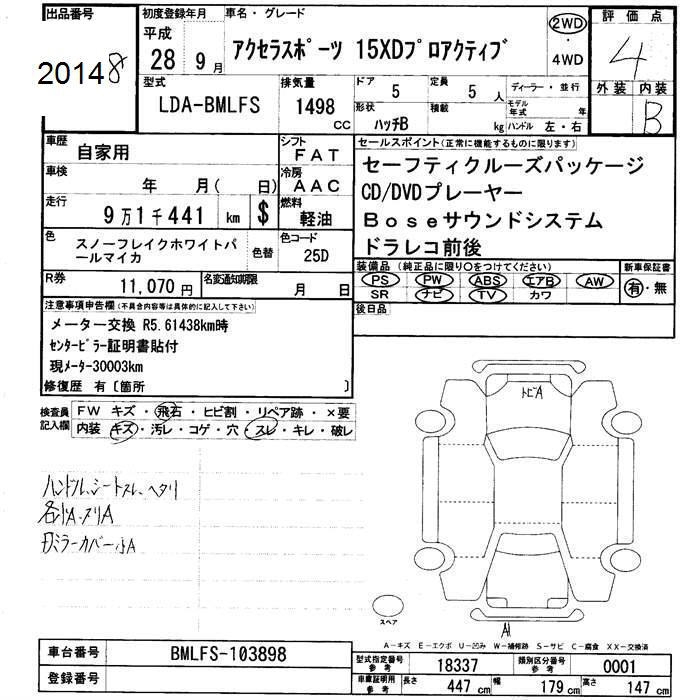 出品番号
20148
初度登録年月
平成
28 9月
車名・グレード
アクセラスポーツ 15XDプロアクティブ
2WD
・
4WD
評価点
4
外装 内装
B
型式
LDA-BMLFS
排気量
1498
CC
ドア
5
定員
5 人
形状
ハッチB
積載
kg
ディーラー・並行
モデル年式 年
ハンドル 左・右
車歴
自家用
シフト
FAT
車検
年 月( 日)
冷房
AAC
走行
9万1千441 km
$
燃料
軽油
色
スノーフレイクホワイトパールマイカ
色替
色コード
25D
R券
11,070円
名変通知期限
月 日
セールスポイント(正常に機能するものに限ります)
セーフティクルーズパッケージ
CD/DVDプレーヤー
Boseサウンドシステム
ドラレコ前後
装備品(純正品に限り○をつけてください)
PS PW ABS エアB AW
SR ナビ TV カワ
新車保証書
有・無
後日品
注意事項申告欄(不具合内容等は具体的に記入して下さい)
メーター交換 R5.61438km時
センターピラー証明書貼付
現メーター30003km
修復歴 有〔箇所 〕
検査員記入欄
FW キズ・飛石・ヒビ割・リペア跡・×要
内装 キズ・汚レ・コゲ・穴・スレ・キレ・破レ
ハンドル、シートスレ、ヘタリ
各小A・ヌリA
ミラーカバー小A
トビA
スペア
A1
A－キズ E－エクボ U－凹み W－補修跡 S－サビ C－腐食 XX－交換済
車台番号
BMLFS-103898
登録番号
型式指定番号
参考
18337
類別区分番号
参考
0001
車庫証明用
参考
長さ 447 cm
幅 179 cm
高さ 147 cm